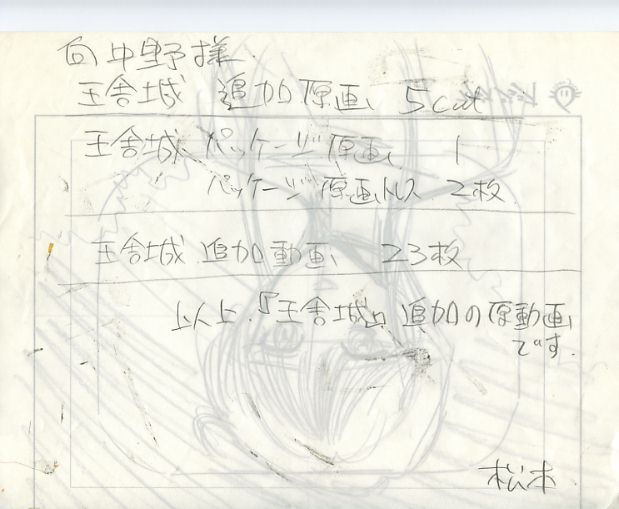 向中野様
王舎城 追加原画 5cut
王舎城 パッケージ原画 1
パッケージ原画トレス 2枚
王舎城 追加動画 23枚
以上、『王舎城』追加の原動画
です.
松本